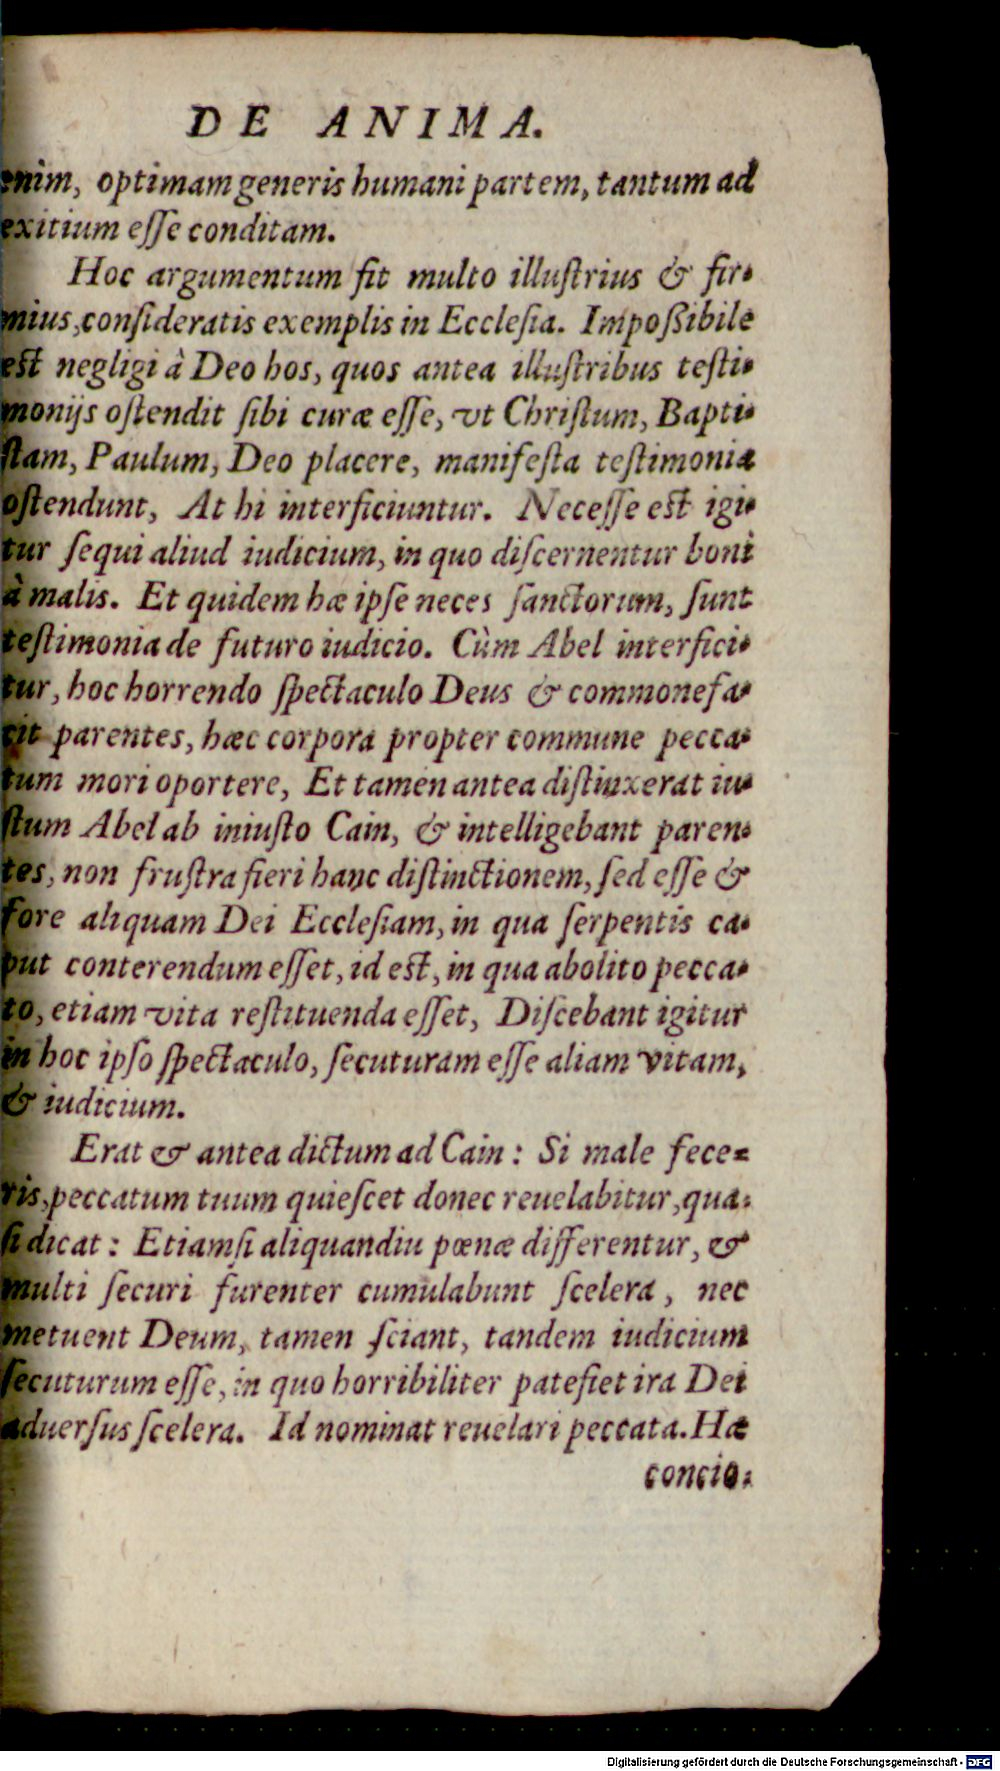 DE ANIMA.
enim, optimam generis humani partem, tantum ad
exitium eſſe conditam.
Hoc argumentum fit multo illuſtrius & fir-
mius, conſideratis exemplis in Eccleſia. Impoßibile
est negligi à Deo hos, quos antea illuſtribus teſti-
monijs oſtendit ſibi curæ eſſe, vt Chriſtum, Bapti-
ſtam, Paulum, Deo placere, manifeſta teſtimonia
oſtendunt, At hi interficiuntur. Neceſſe est igi-
tur ſequi aliud iudicium, in quo diſcernentur boni
à malis. Et quidem hæ ipſe neces ſanctorum, ſunt
teſtimonia de futuro iudicio. Cùm Abel interfici-
tur, hoc horrendo ſpectaculo Deus & commonefa-
cit parentes, hæc corpora propter commune pecca-
tum mori oportere, Et tamen antea diſtinxerat iu-
ſtum Abel ab iniuſto Cain, & intelligebant paren-
tes, non fruſtra fieri hanc diſtinctionem, ſed eſſe &
fore aliquam Dei Eccleſiam, in qua ſerpentis ca-
put conterendum eſſet, id est, in qua abolito pecca-
to, etiam vita reſtituenda eſſet, Diſcebant igitur
in hoc ipſo ſpectaculo, ſecuturam eſſe aliam vitam,
& iudicium.
Erat & antea dictum ad Cain: Si male fece-
ris, peccatum tuum quieſcet donec reuelabitur, qua-
ſi dicat: Etiamſi aliquandiu pœnæ differentur, &
multi ſecuri furenter cumulabunt ſcelera, nec
metuent Deum, tamen ſciant, tandem iudicium
ſecuturum eſſe, in quo horribiliter patefiet ira Dei
aduerſus ſcelera. Id nominat reuelari peccata. Hæ
concio-
Digitalisierung gefördert durch die Deutsche Forschungsgemeinschaft - DFG